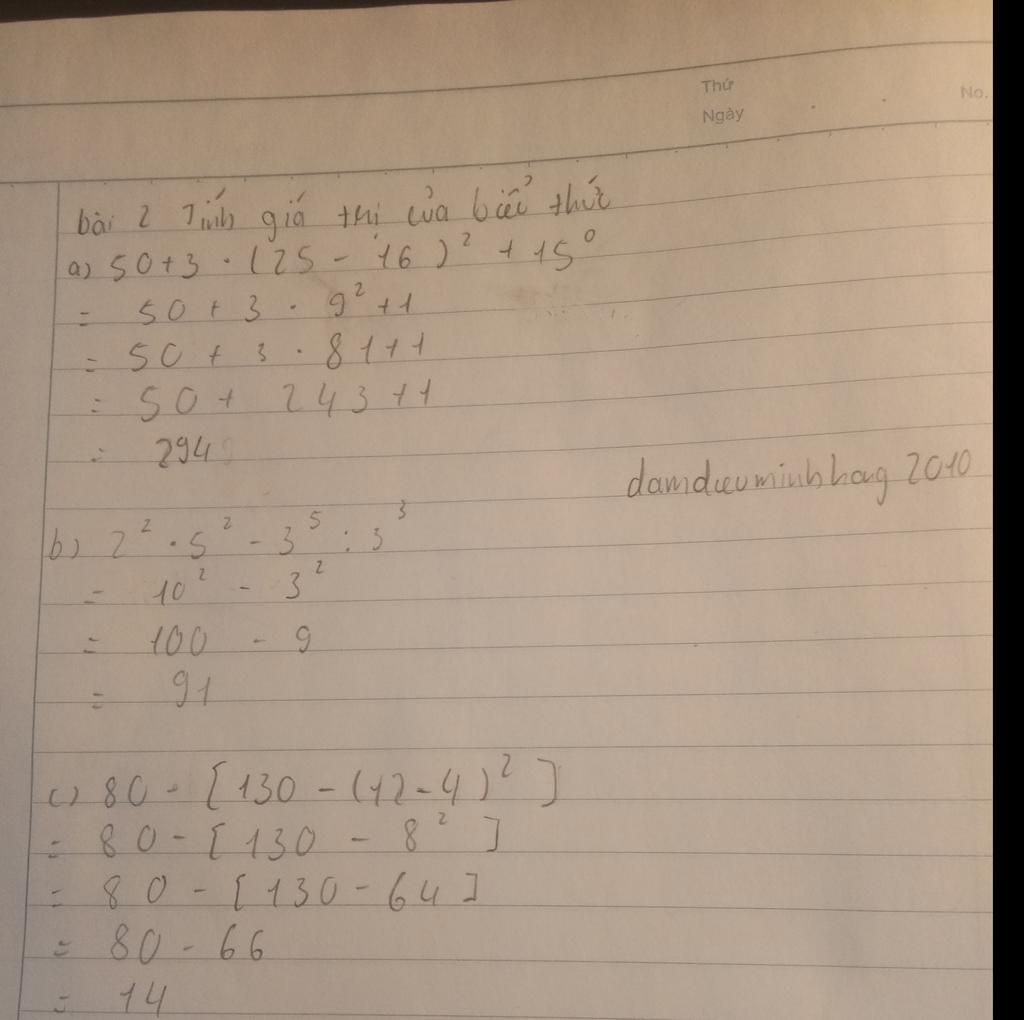 Thứ
Ngày
No.
bài 2 Tính giá thị của biểu thức
a) 50+3 . (25 - 16)² + 15⁰
= 50 + 3 . 9² +1
= 50 + 3 . 81+1
= 50 + 243 +1
= 294
damdieuminhhang 2010
b) 2² . 5² - 3⁵ : 3³
= 10² - 3²
= 100 - 9
= 91
c) 80 - [130 - (12-4)²]
= 80 - [130 - 8²]
= 80 - [130 - 64]
= 80 - 66
= 14